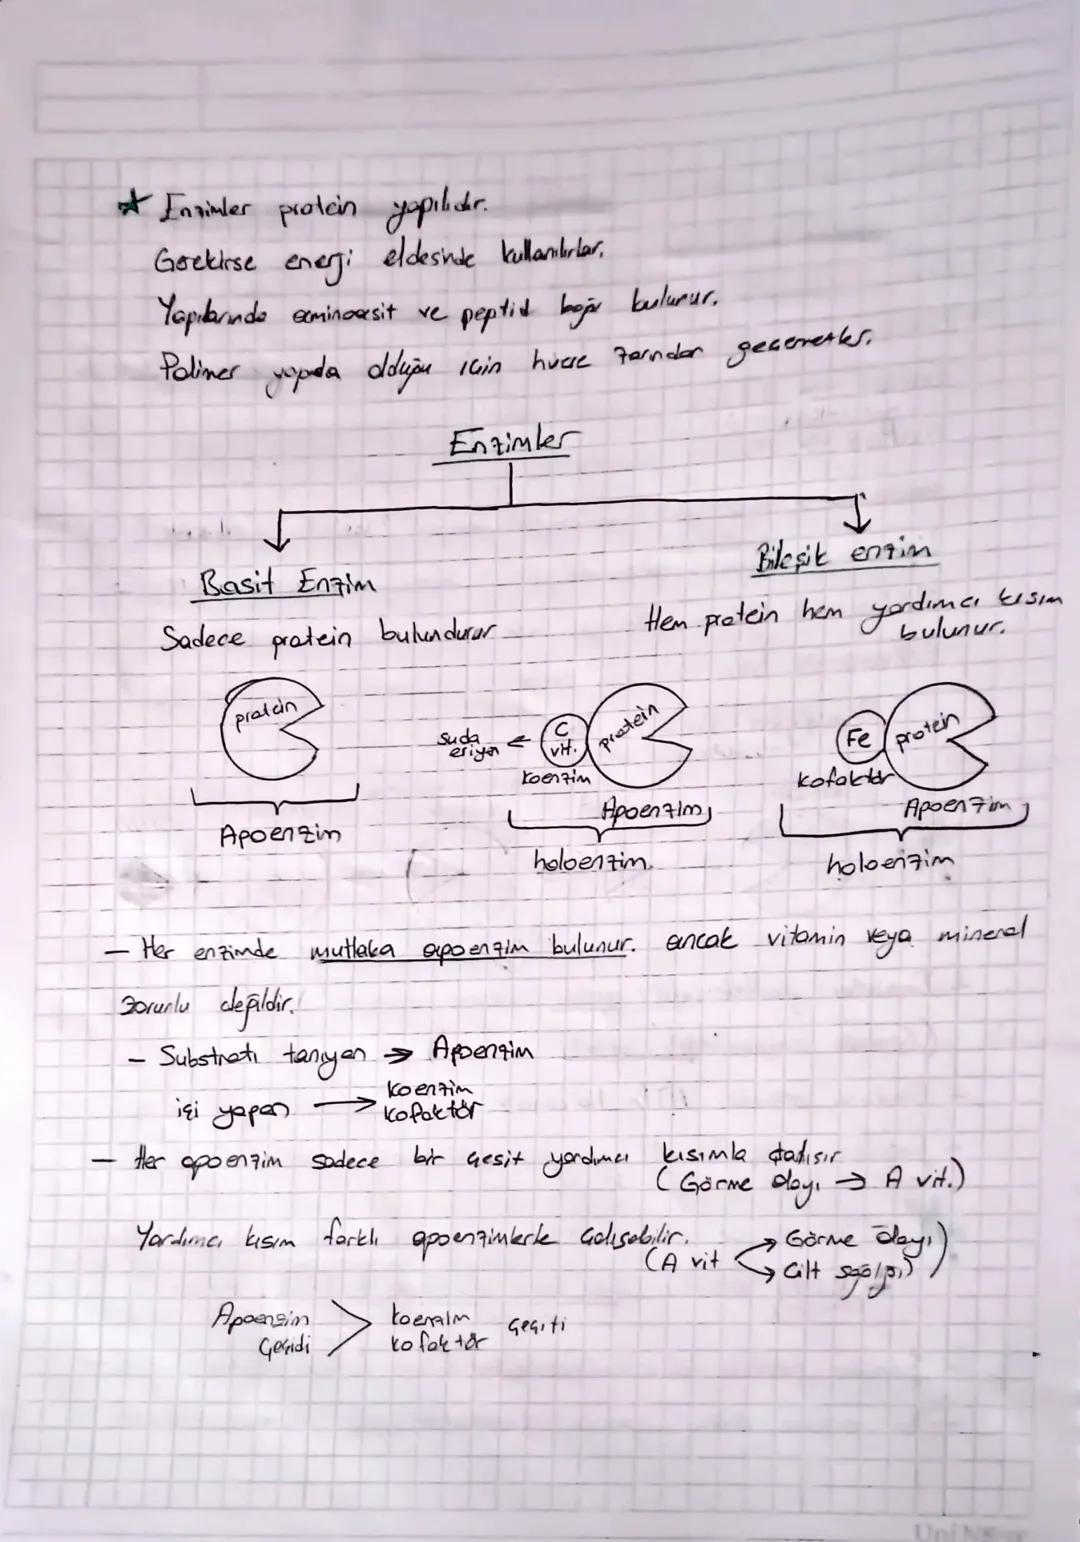 Enzimler protein yapılıdır.
Gerekirse energi eldesinde kullanılırlar.
Yapılarında aminoasit ve peptid bağı bulunur.
Polimer yapıda olduğu için hücre zarından geçemezler.
Enzimler
Basit Enzim
Sadece protein bulundurur
Bileşik enzim
Hem protein hem yardımcı kısım
bulunur.
protein
Apoenzim
suda
eriyen
C
vit.
protein
koenzim
Apoenzim
holoenzim.
Fe
protein
kofaktör
Apoenzim
holoenzim
- Her enzimde mutlaka apoenzim bulunur. ancak vitamin veya mineral
zorunlu değildir.
- Substratı tanıyan → Apoenzim
işi yapan → koenzim
kofaktör
- Her apoenzim sadece bir çeşit yardımcı kısımla çalışır
(Görme olayı → A vit.)
Yardımcı kısım farklı apoenzimlerle çalışabilir.
(A vit → Görme olayı
→ Cilt sağlığı)
Apoenzim
çeşidi
>
koenzim
kofaktör
çeşiti